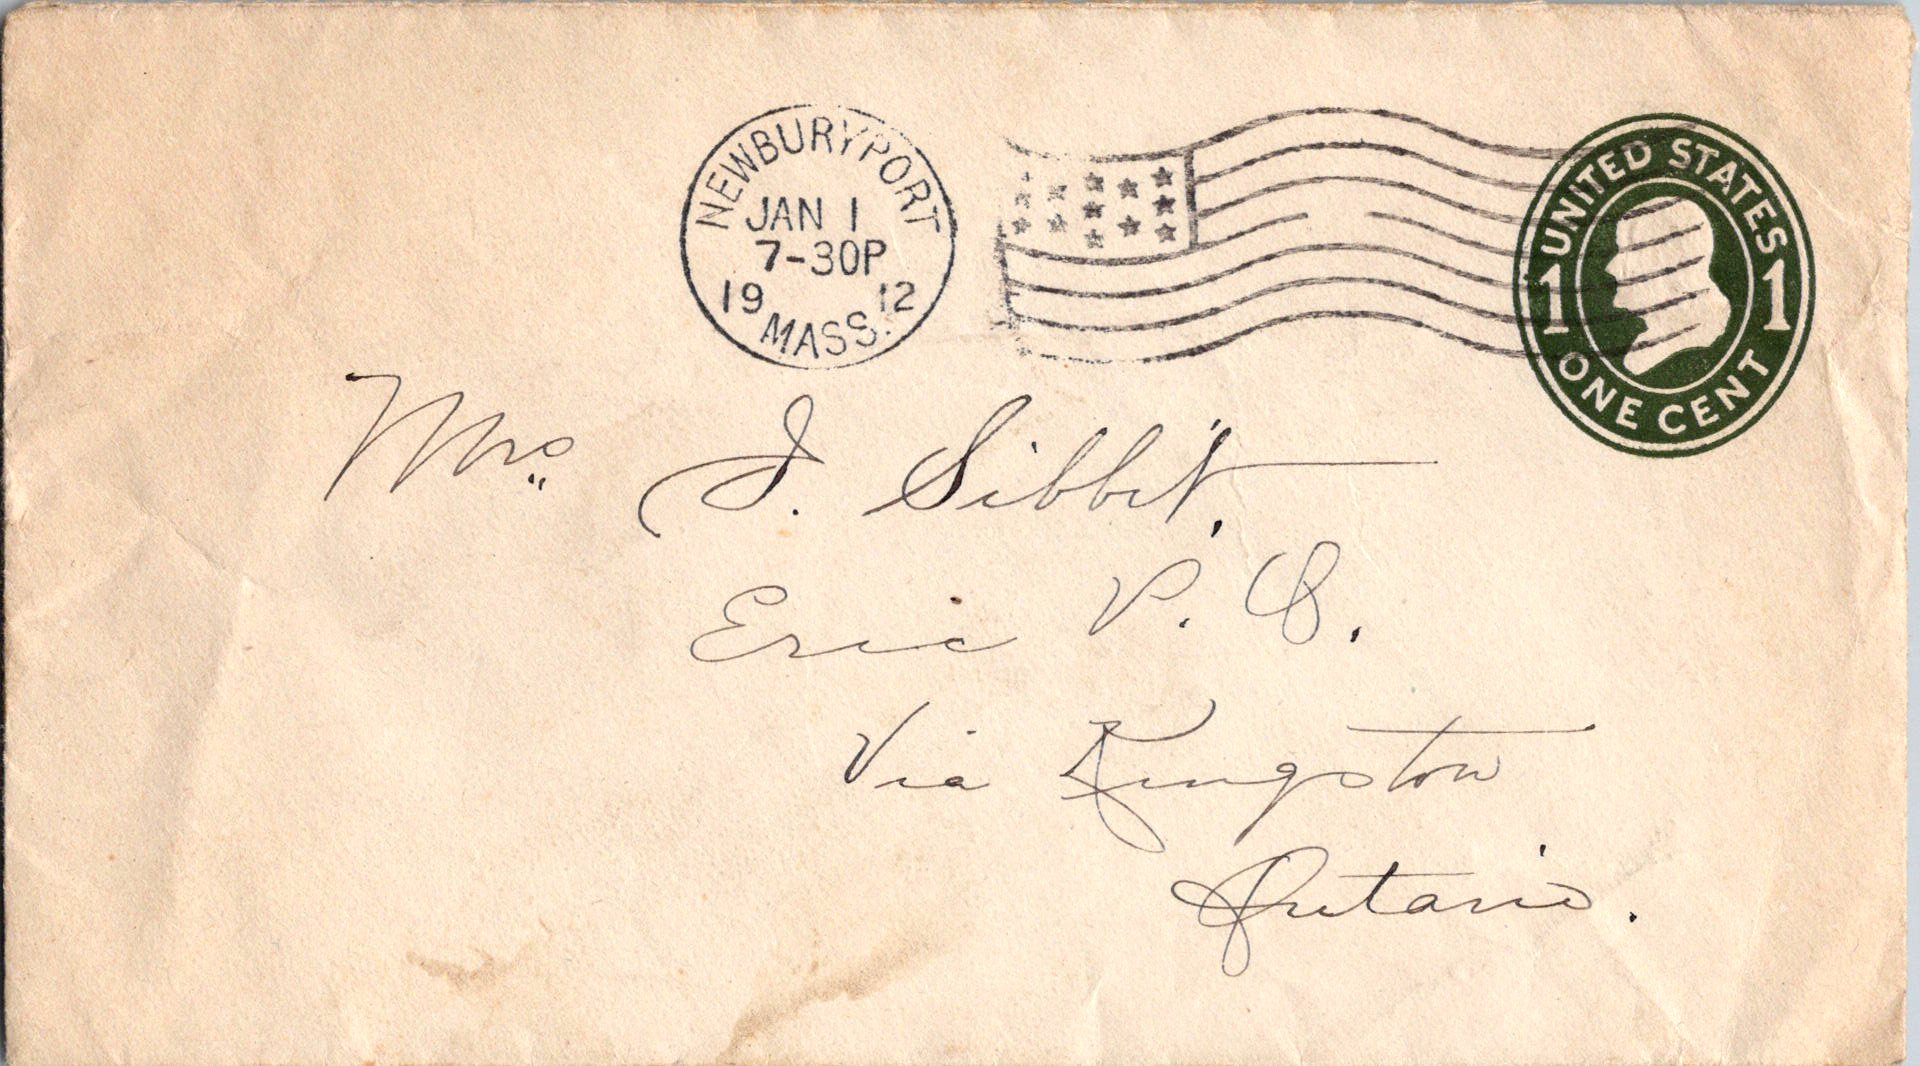 NEWBURYPORT
JAN 1
7-30P
19 12
MASS.
UNITED STATES
1 1
ONE CENT
Mrs. J. Sibbit.
Eric P. O.
Via Kingston
Ontario.